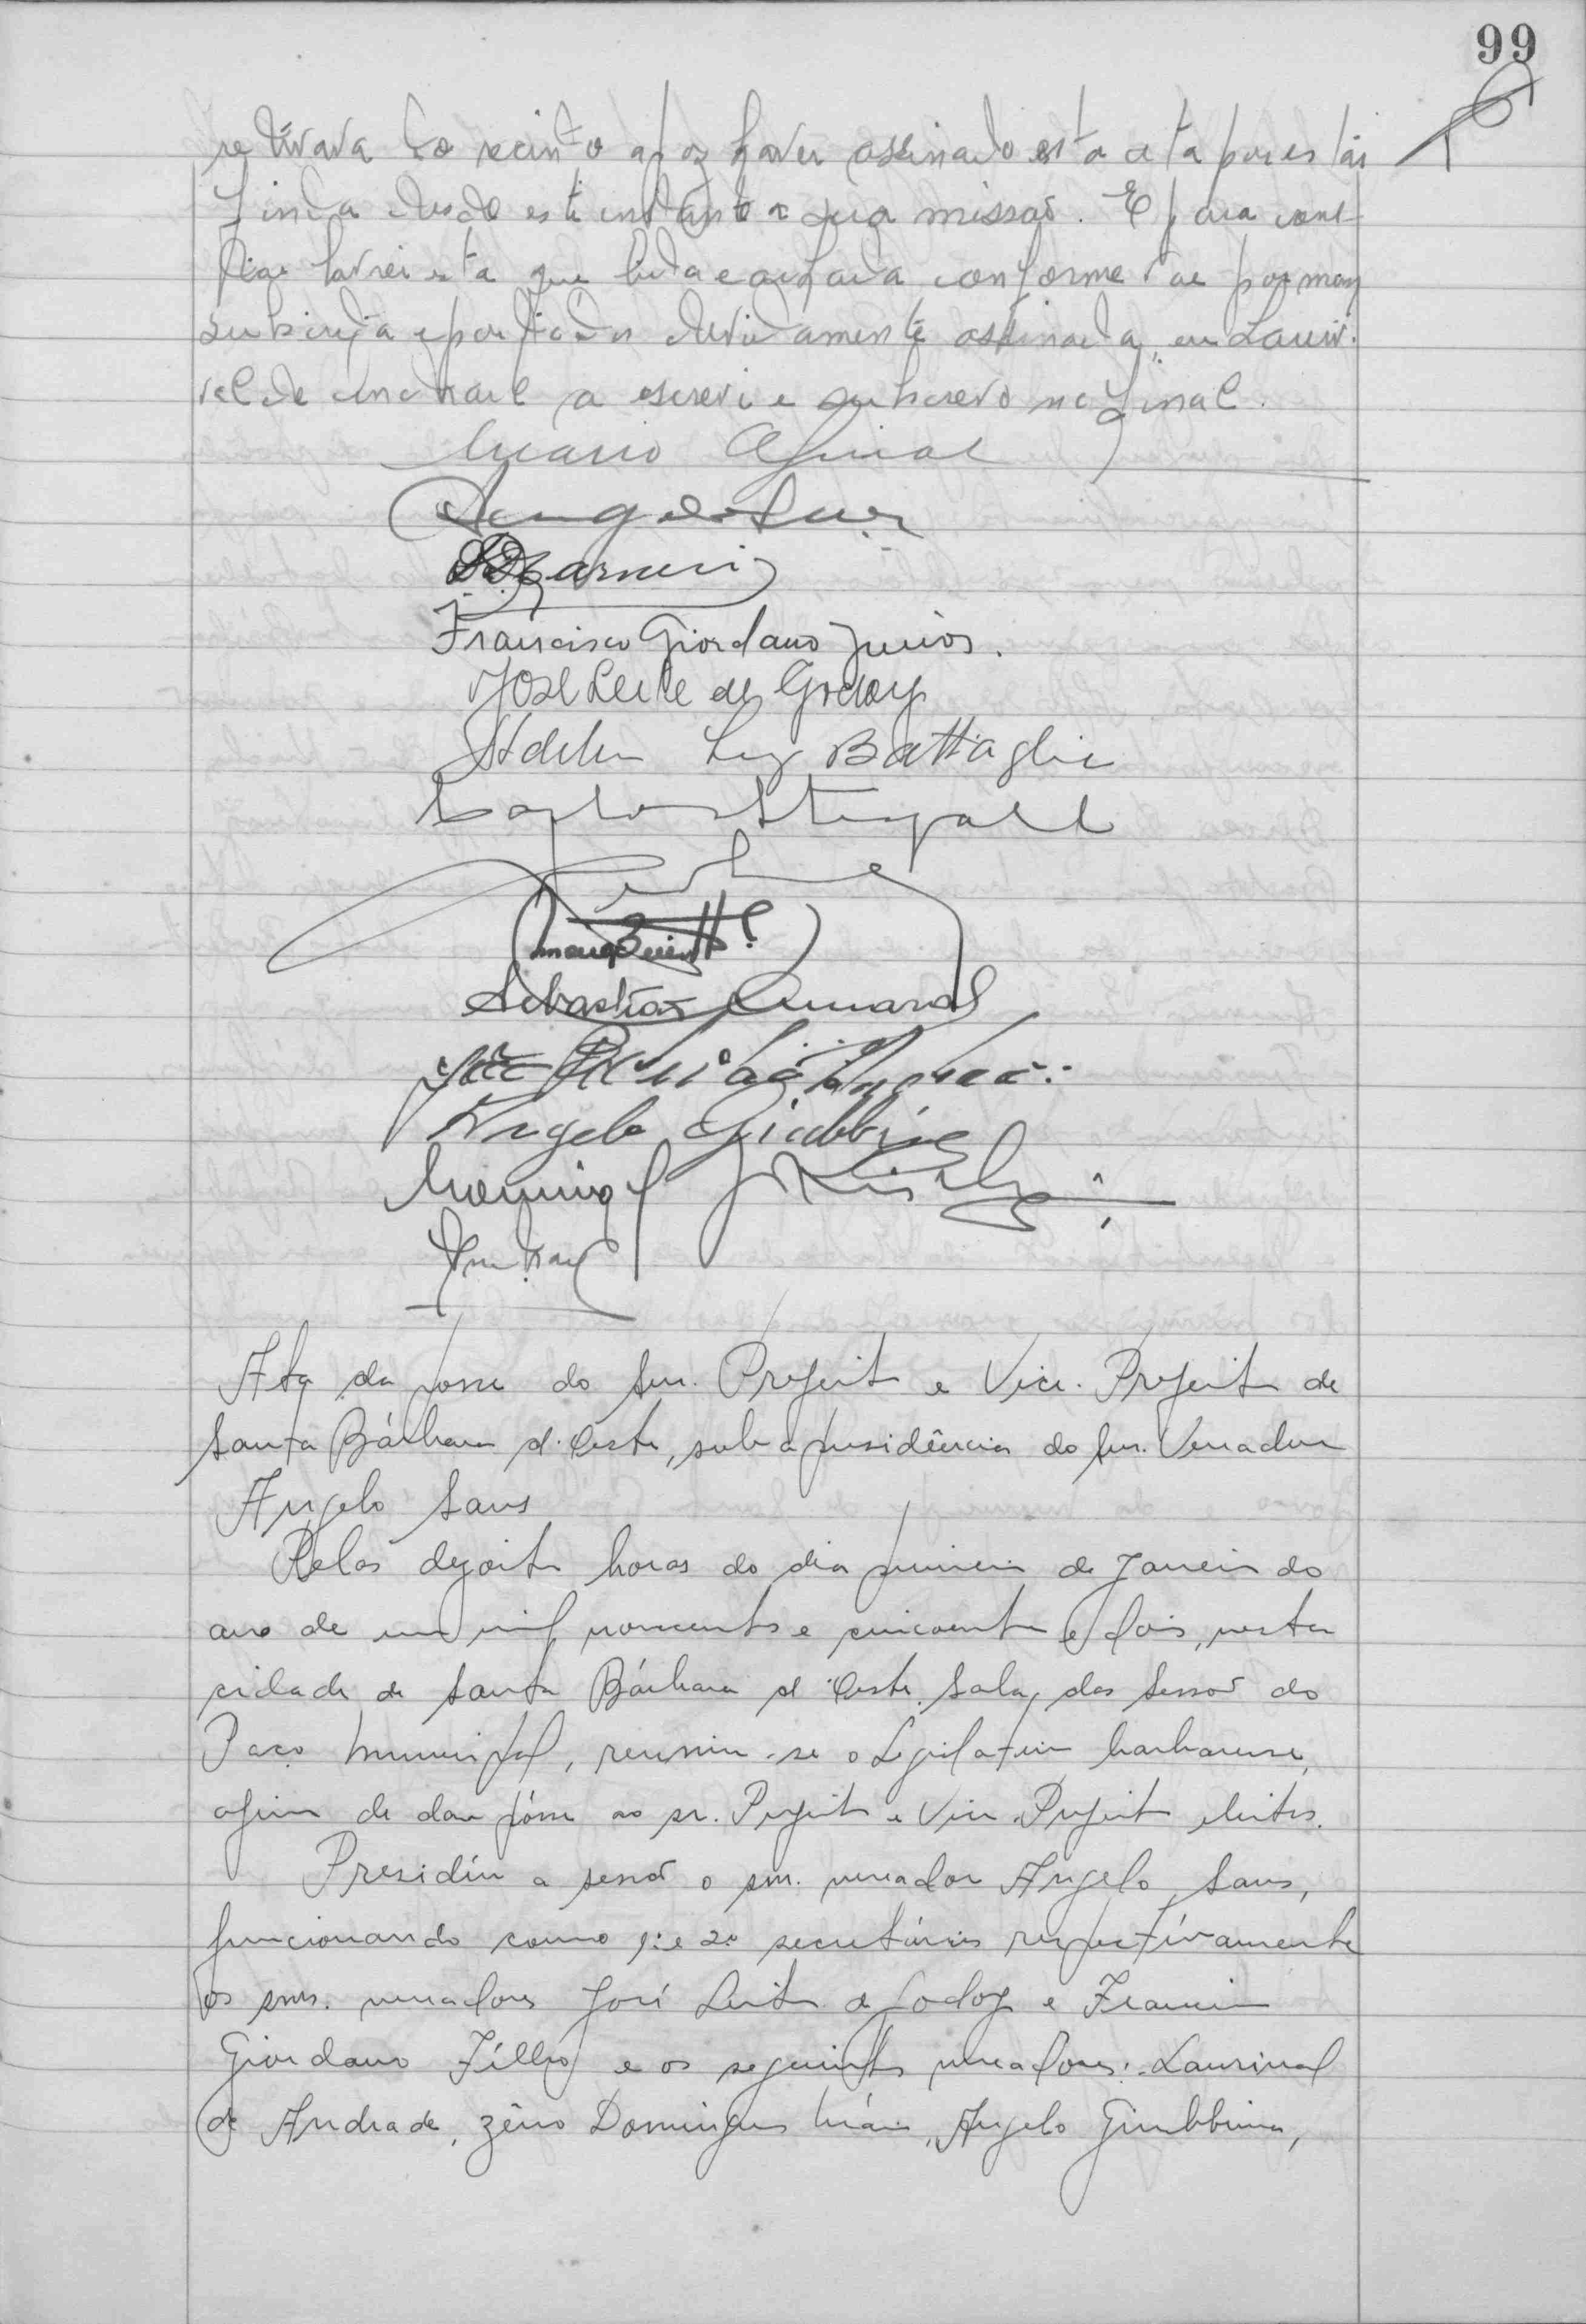 99
retirava do recinto apoz haver assinado esta ata por estar
finda desde este instante a sua missão. E para cons-
tar lavrei esta que lida e achada conforme vae por mim
subscrita e por todos devidamente assinada, eu Lauri-
val de Andrade a escrevi e subscrevo no final.
Mario
Francisco Giordano Junior.
José Leite de Godoy
Luiz Battaglia
Carlos Steagall
Sebastião
Angelo Giubbina
Ata da posse do snr. Prefeito e Vice-Prefeito de
Santa Bárbara d'Oeste, sub a presidência do snr. Vereador
Angelo Sans
Pelas dezoito horas do dia primeiro de Janeiro do
ano de um mil novecentos e cincoenta e dois, nesta
cidade de Santa Bárbara d'Oeste, Sala das Sessões do
Paço Municipal, reuniu-se o Legislativo barbarense,
afim de dar pósse ao sr. Prefeito e Vice-Prefeito eleitos.
Presidiu a sessão o snr. vereador Angelo Sans,
funcionando como 1º e 2º secretários respectivamente
os snrs. vereadores José Leite de Godoy e Francisco
Giordano Filho e os seguintes vereadores: Laurival
de Andrade, Zêno Domingues Maia, Angelo Giubbina,